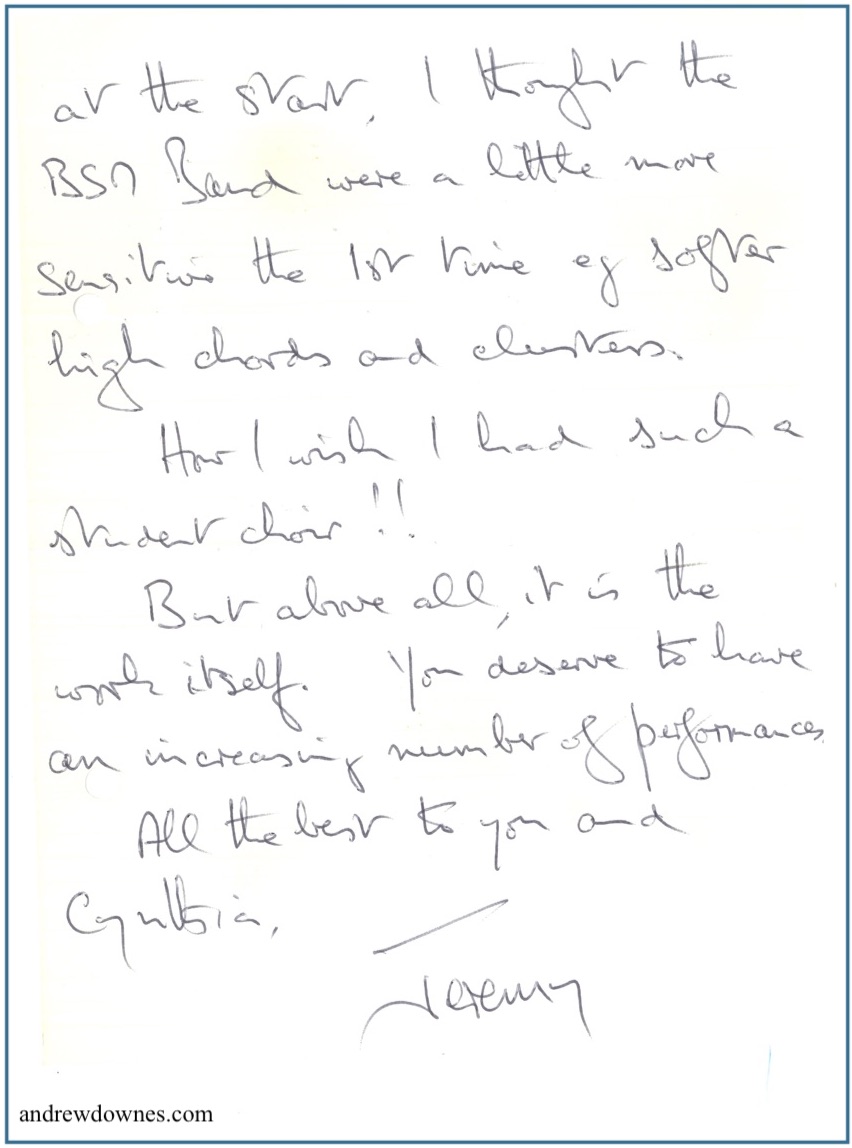 at the start, I thought the
BSM Band were a little more
sensitive the 1st time eg softer
high chords and clusters.
How I wish I had such a
student choir !!
But above all, it is the
work itself. You deserve to have
an increasing number of performances.
All the best to you and
Cynthia,
Jeremy
andrewdownes.com